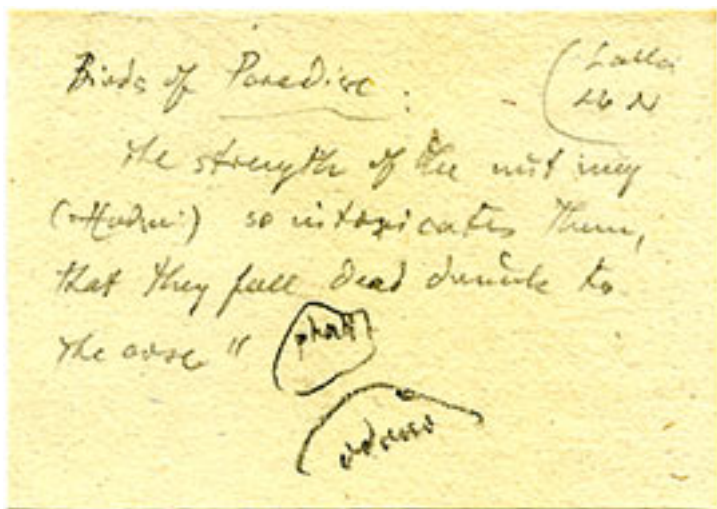 Birds of Paradise.
The strength of the nut meg
so intoxicates them,
that they fall dead drunk to
the